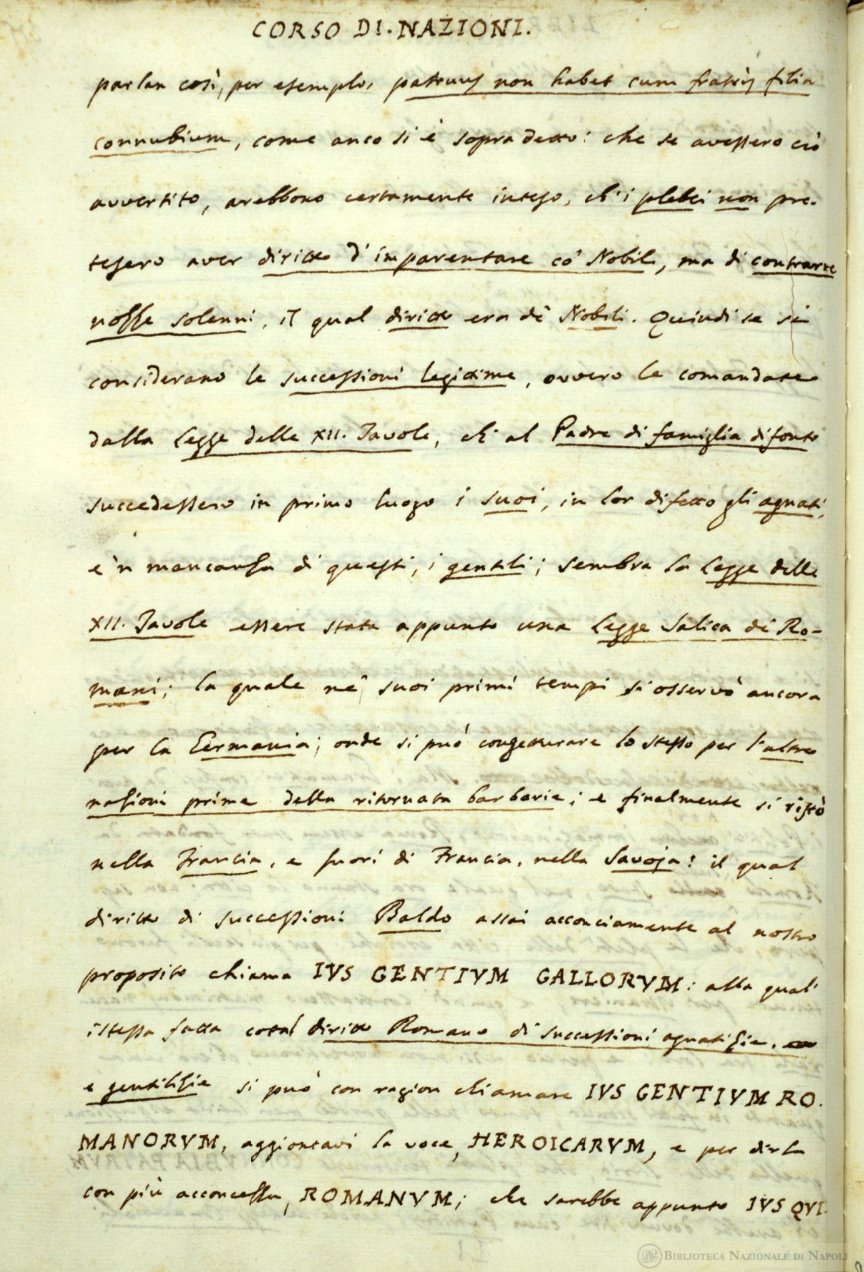 CORSO DI NAZIONI.
parlan così, per esempio, patruus non habet cum fratris filia
connubium, come anco si è sopra detto: che se avessero ciò
avvertito, arebbono certamente inteso, ch'i plebei non pre-
tesero aver diritto d'imparentare co' Nobili, ma di contrarre
nozze solenni, il qual diritto era de' Nobili. Quindi se si
considerano le successioni legittime, ovvero le comandate
dalla Legge delle XII. Tavole, ch'al Padre di famiglia difonto
succedessero in primo luogo i suoi, in lor difetto gli agnati,
e 'n mancanza di questi, i gentili; sembra la Legge delle
XII. Tavole essere stata appunto una Legge Salica de' Ro-
mani; la quale ne' suoi primi tempi si osservò ancora
per la Germania; onde si può congetturare lo stesso per l'altre
nazioni prime della ritornata barbarie; e finalmente si ristò
nella Francia, e fuori di Francia, nella Savoja: il qual
diritto di successioni Baldo assai acconciamente al nostro
proposito chiama IVS GENTIVM GALLORVM: alla qual'
istessa fatta cotal diritto Romano di successioni agnatizie,
e gentilizie si può con ragion chiamare IVS GENTIVM RO-
MANORVM, aggiontavi la voce, HEROICARVM, e per dirla
con più acconcezza, ROMANVM; che sarebbe appunto IVS QVI
BIBLIOTECA NAZIONALE DI NAPOLI